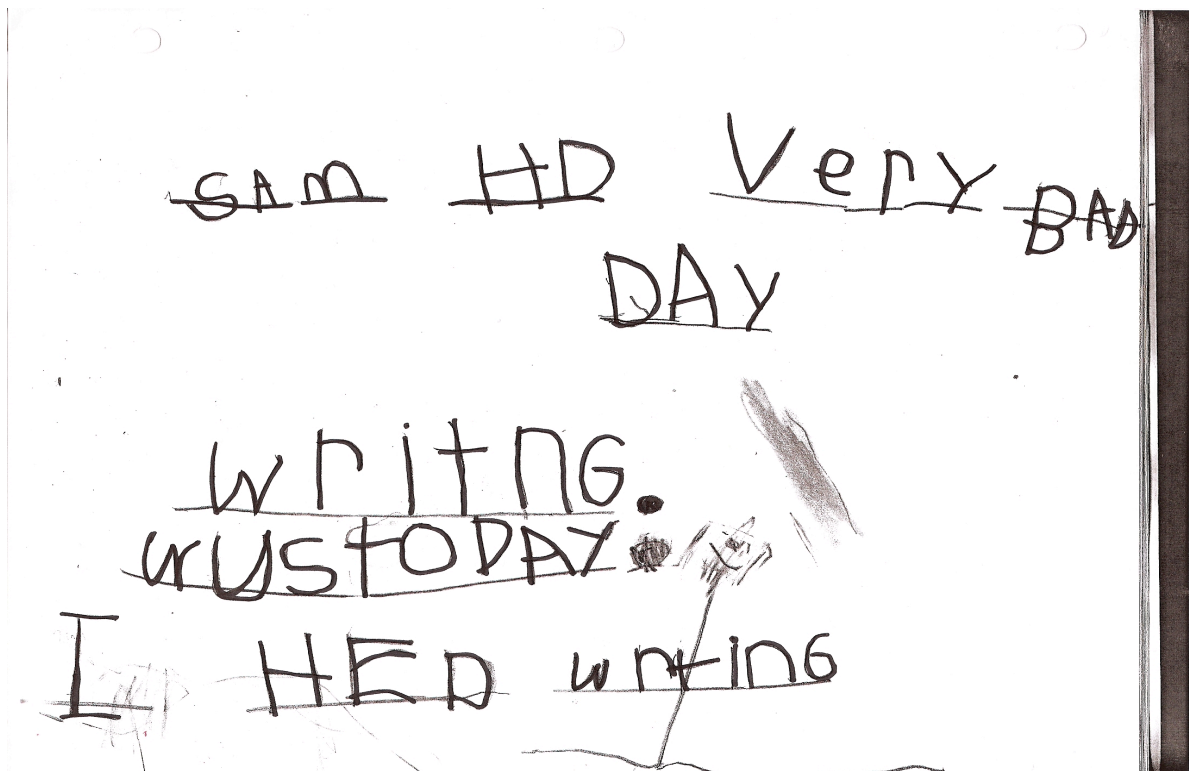 SAM HD Very BAD
DAY
writnG.
wustoDAY.
I HED wrtinG